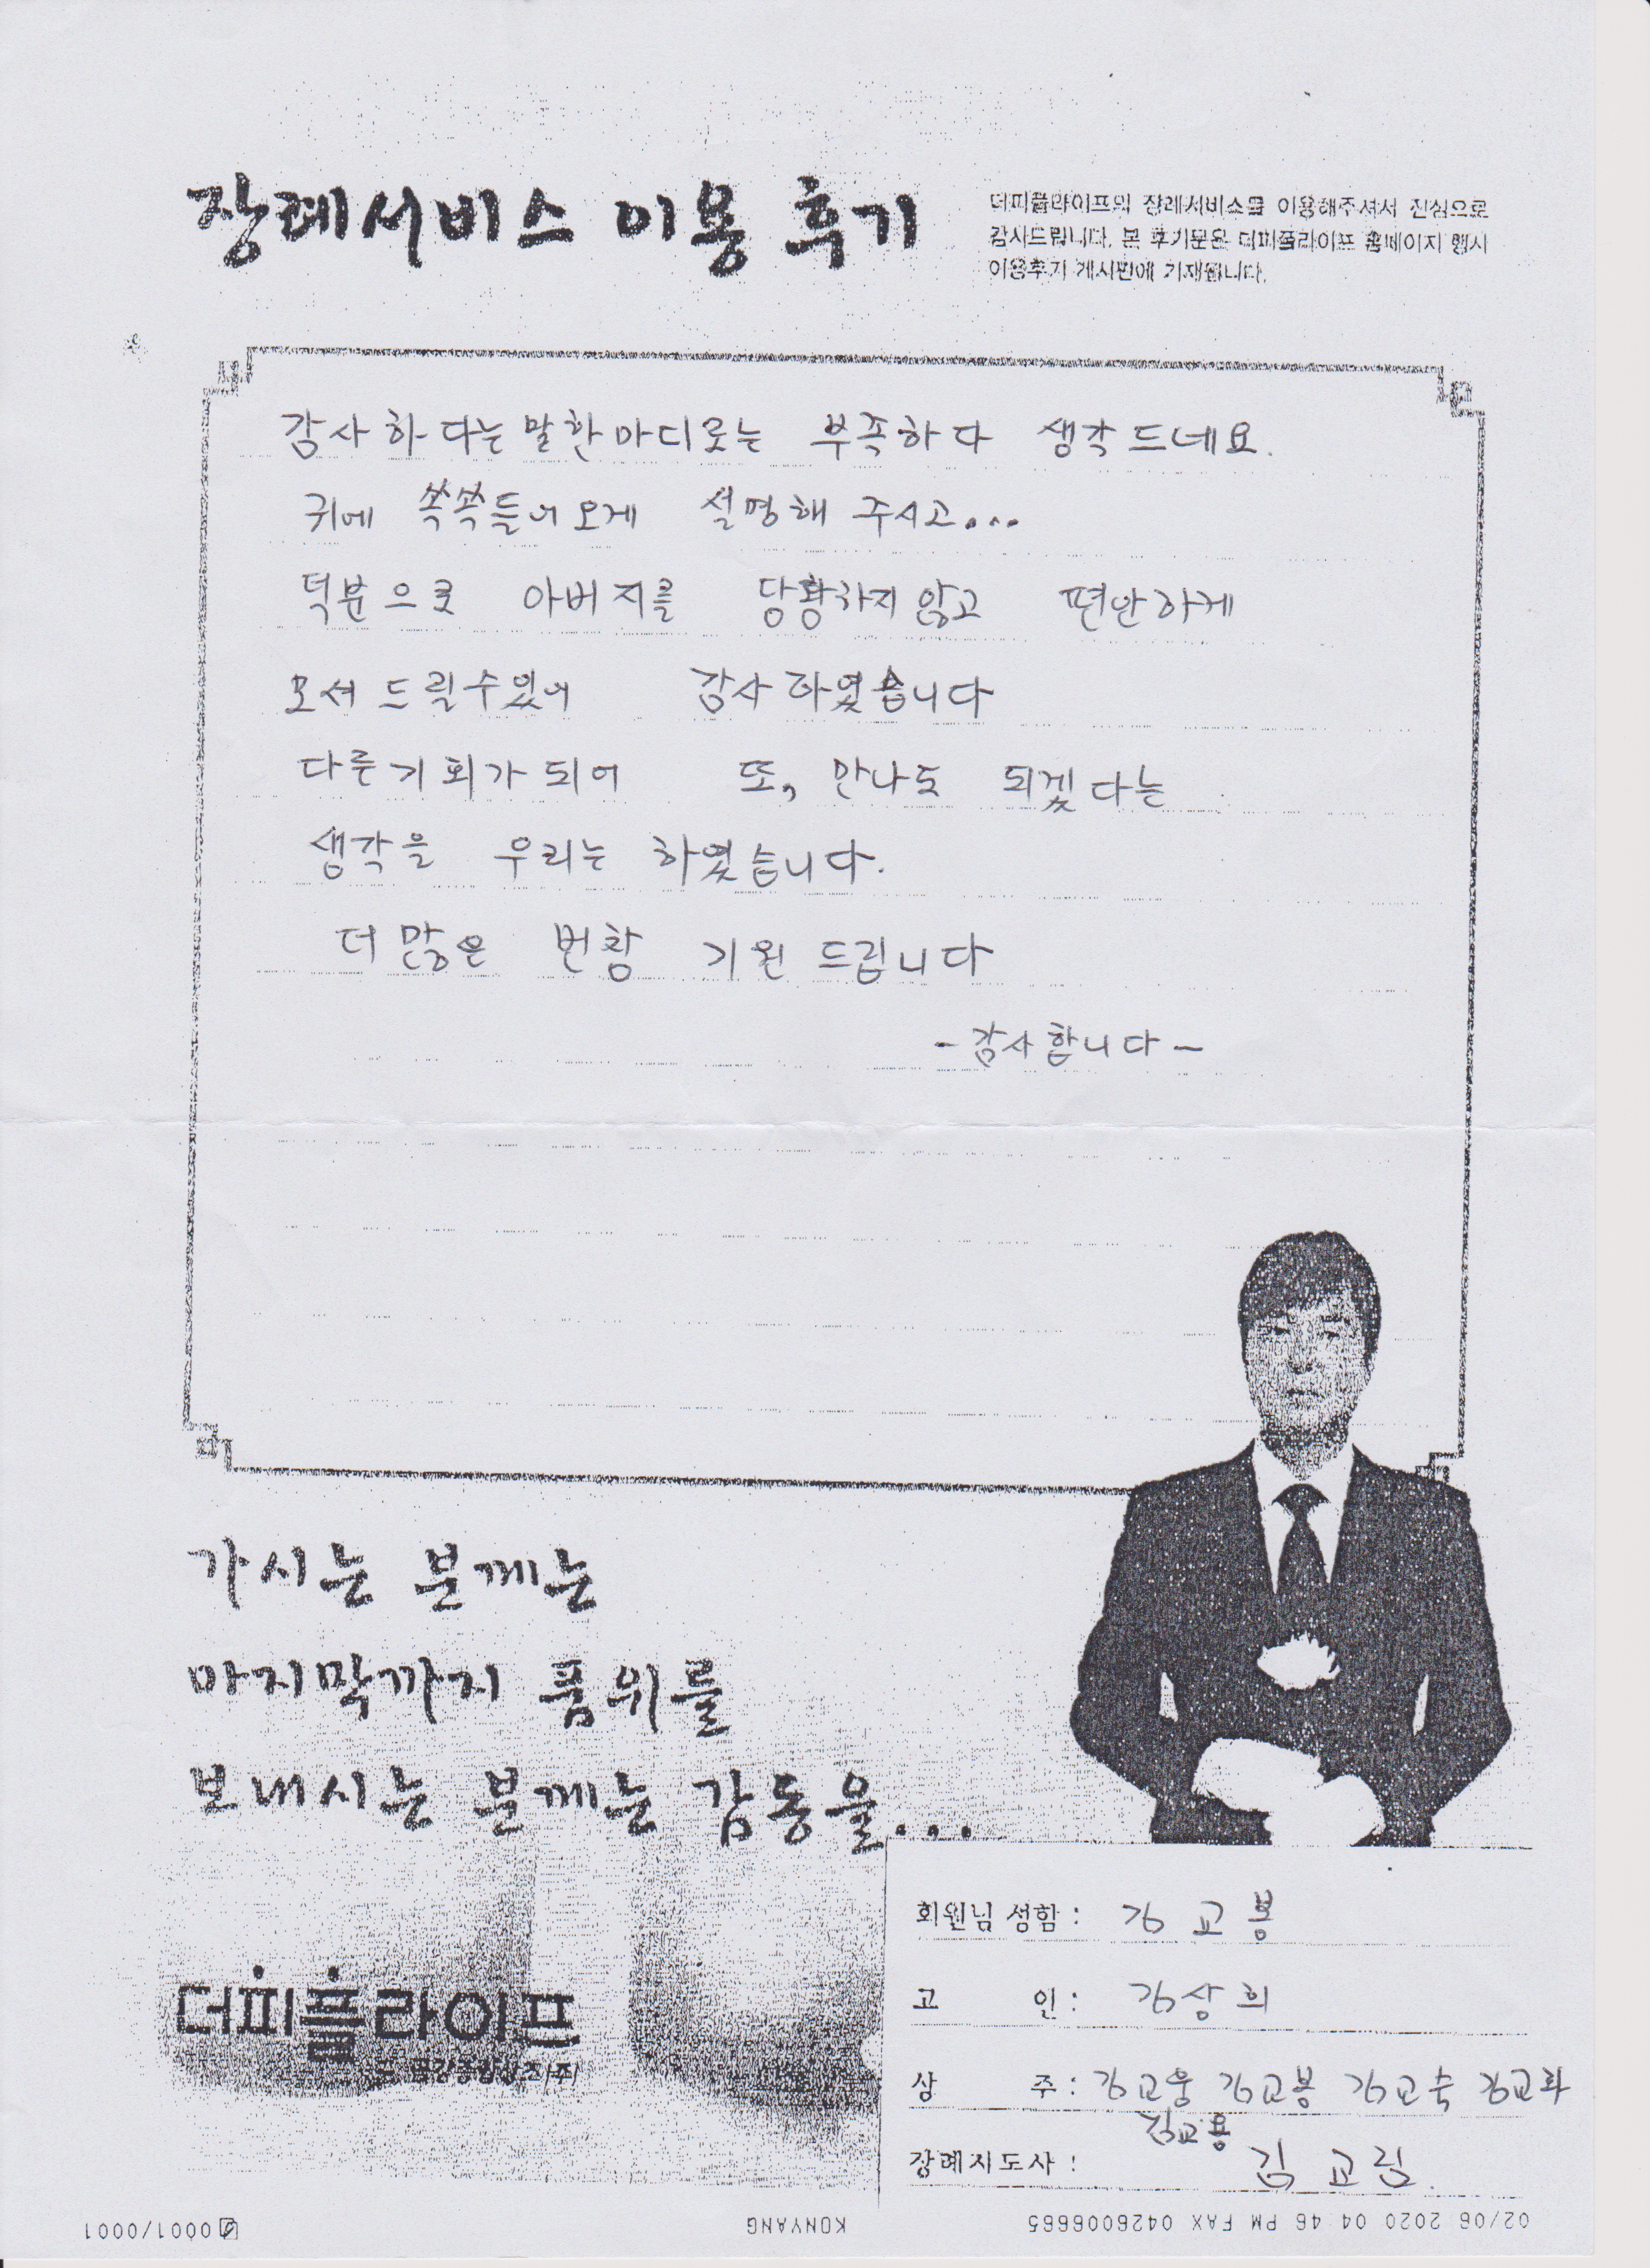 장례서비스 이용 후기
더피플라이프의 장례서비스를 이용해주셔서 진심으로
감사드립니다. 본 후기문은 더피플라이프 홈페이지 행사
이용후기 게시판에 기재됩니다.
감사하다는 말한마디로는 부족하다 생각드네요.
귀에 쏙쏙들어오게 설명해 주시고...
덕분으로 아버지를 당황하지 않고 편안하게
모셔 드릴수있어 감사하였습니다
다른기회가 되어 또, 만나도 되겠다는
생각을 우리는 하였습니다.
더 많은 번창 기원 드립니다
-감사합니다-
가시는 분께는
마지막까지 품위를
보내시는 분께는 감동을...
더피플라이프
금강종합상조(주)
회원님 성함 : 김교봉
고 인 : 김상희
상 주 : 김교웅 김교봉 김교숙 김교화
김교용
장례지도사 : 김교림
02/06 2020 04:46 PM FAX 0426006665 KONYANG 0001/0001